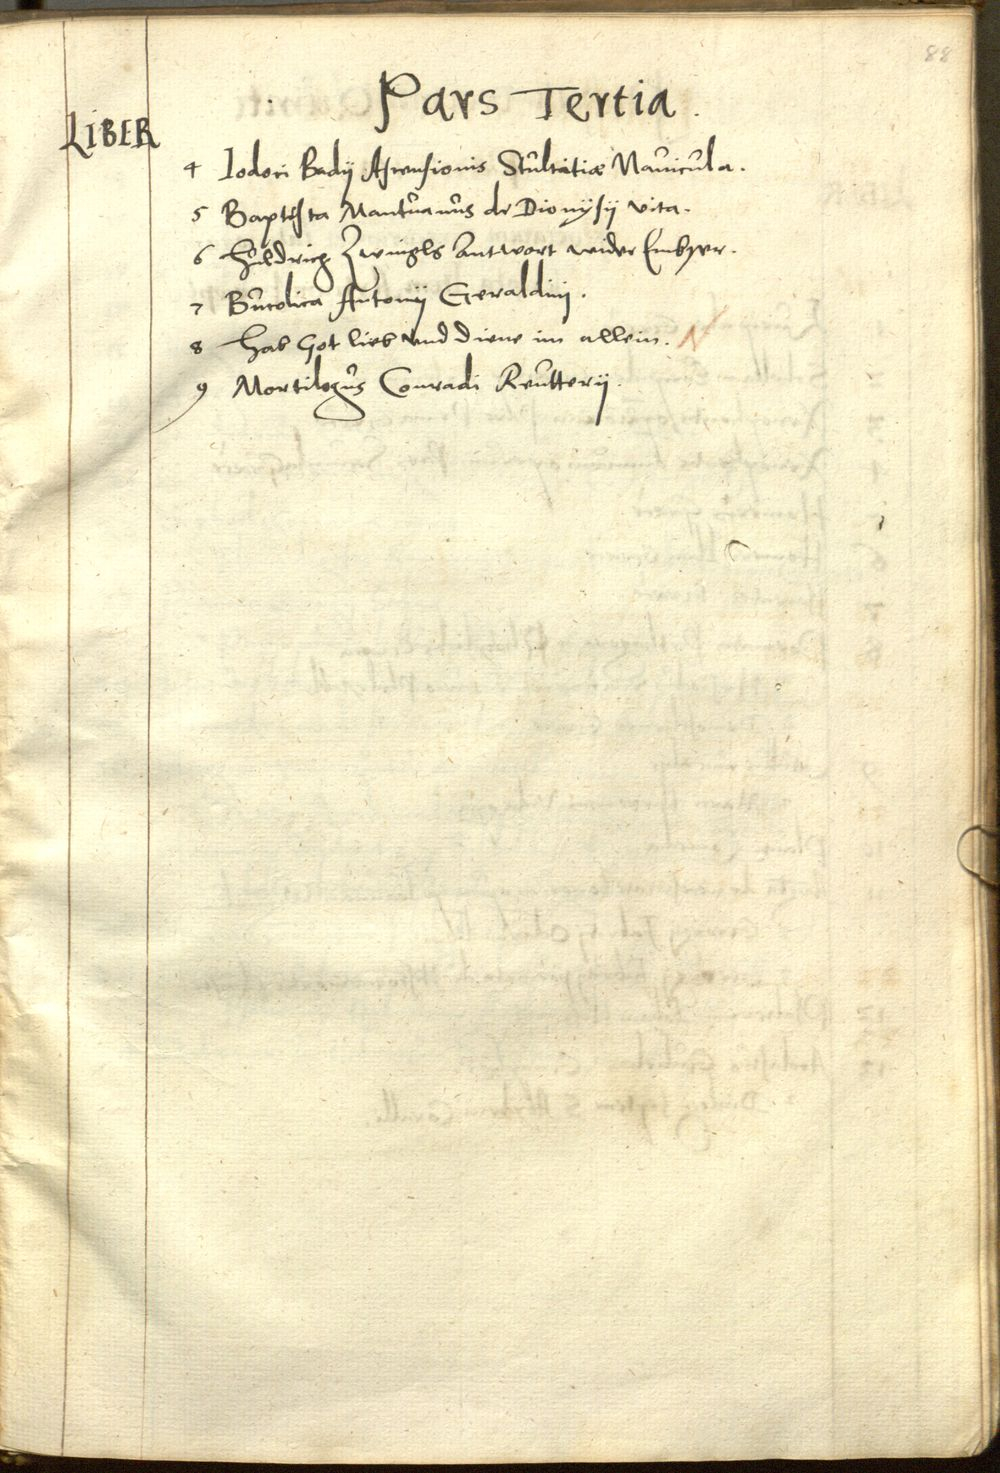 88
Pars Tertia.
LIBER
4 Iodoci Badij Ascensionis Stultitiæ Nauicula.
5 Baptista Mantuanus de Dionysij vita.
6 Huldrich Zwingls Antwort wider Embser.
7 Bucolica Antonij Geraldini.
8 Hab Got lieb vnd diene im allein. N
9 Mortilogus Conradi Reutterij.